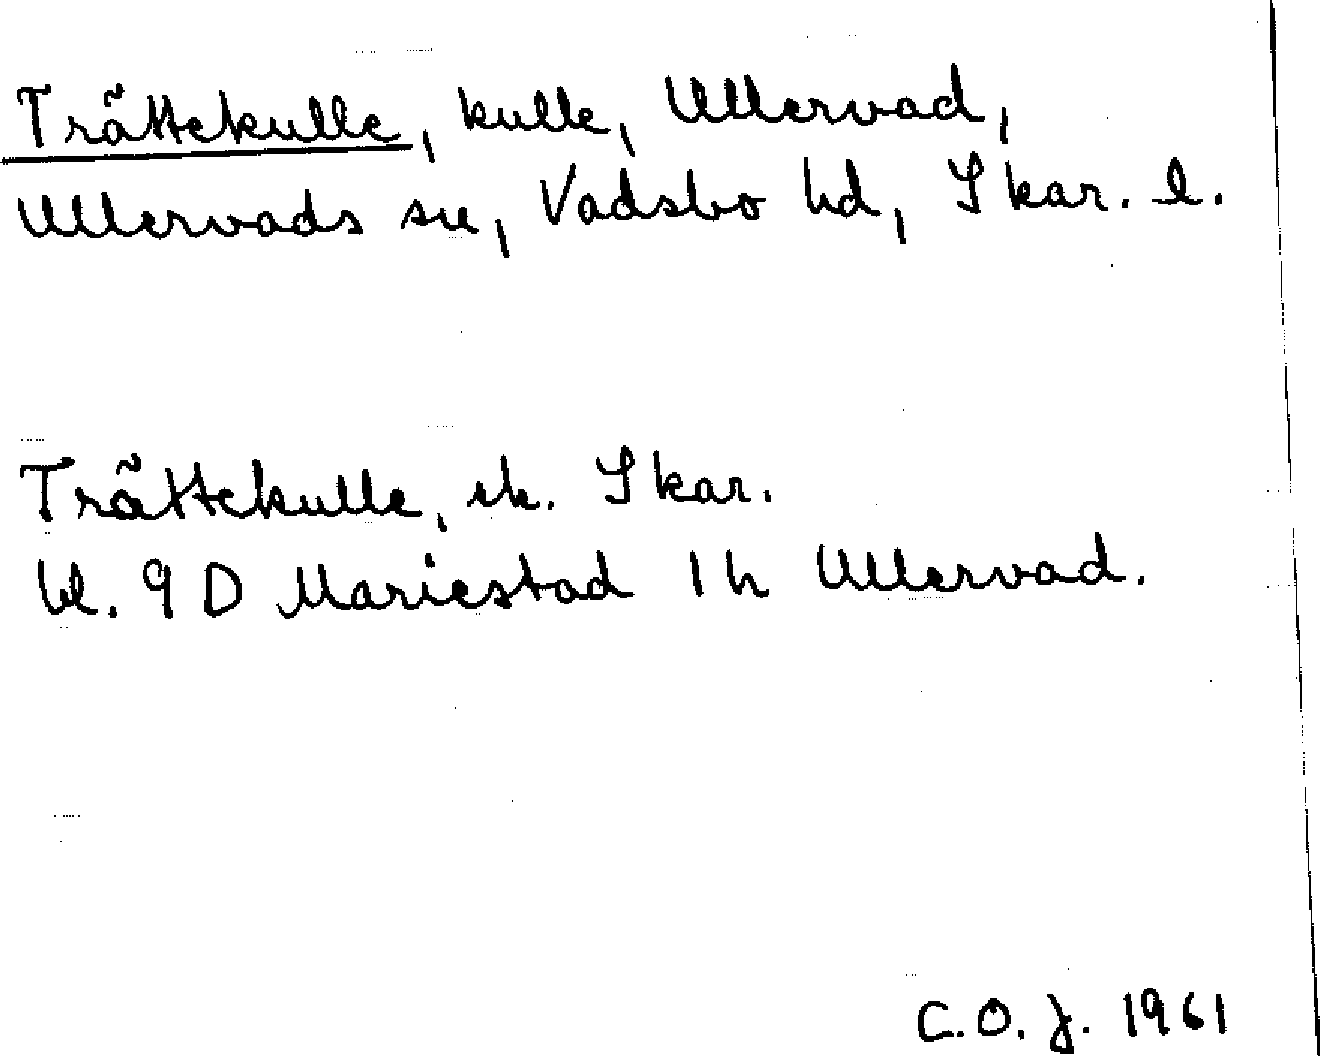 Trättekulle, kulle, Ullervad,
Ullervads sn, Vadsbo hd, Skar. l.
Trättekulle, ek. Skar.
bl. 9 D Mariestad 1 h Ullervad.
C.O.J. 1961